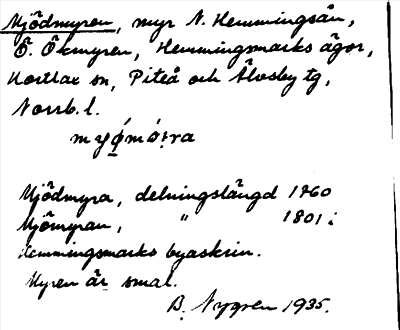 Mjödmyren, myr N. Hemmingsån,
Ö. Ökmyren, Hemmingsmarks ägor,
Hortlax sn, Piteå och Älvsby tg,
Norrb. l.
Mjödmyra, delningslängd 1760
Mjömyran, " 1801 i
Hemmingsmarks byaskrin.
Myren är smal.
B. Nygren 1935.